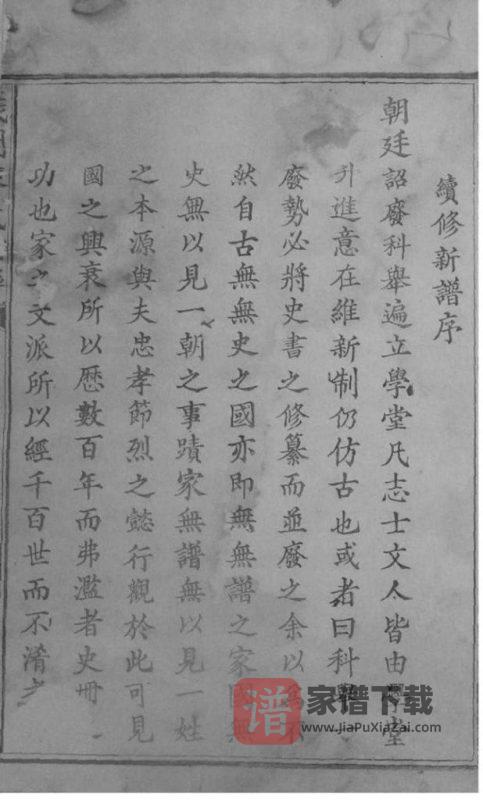 續修新譜序
朝廷詔廢科舉遍立學堂凡志士文人皆由學堂
引進意在維新制仍仿古也或者曰科舉
廢勢必將史書之修纂而並廢之余以為不
然自古無無史之國亦即無無譜之家國無
史無以見一朝之事蹟家無譜無以見一姓
之本源與夫忠孝節烈之懿行觀於此可見
國之興衰所以歷數百年而弗濫者史冊
功也家之文派所以經千百世而不淆者
谱 家谱下载
www.JiaPuXiaZai.com